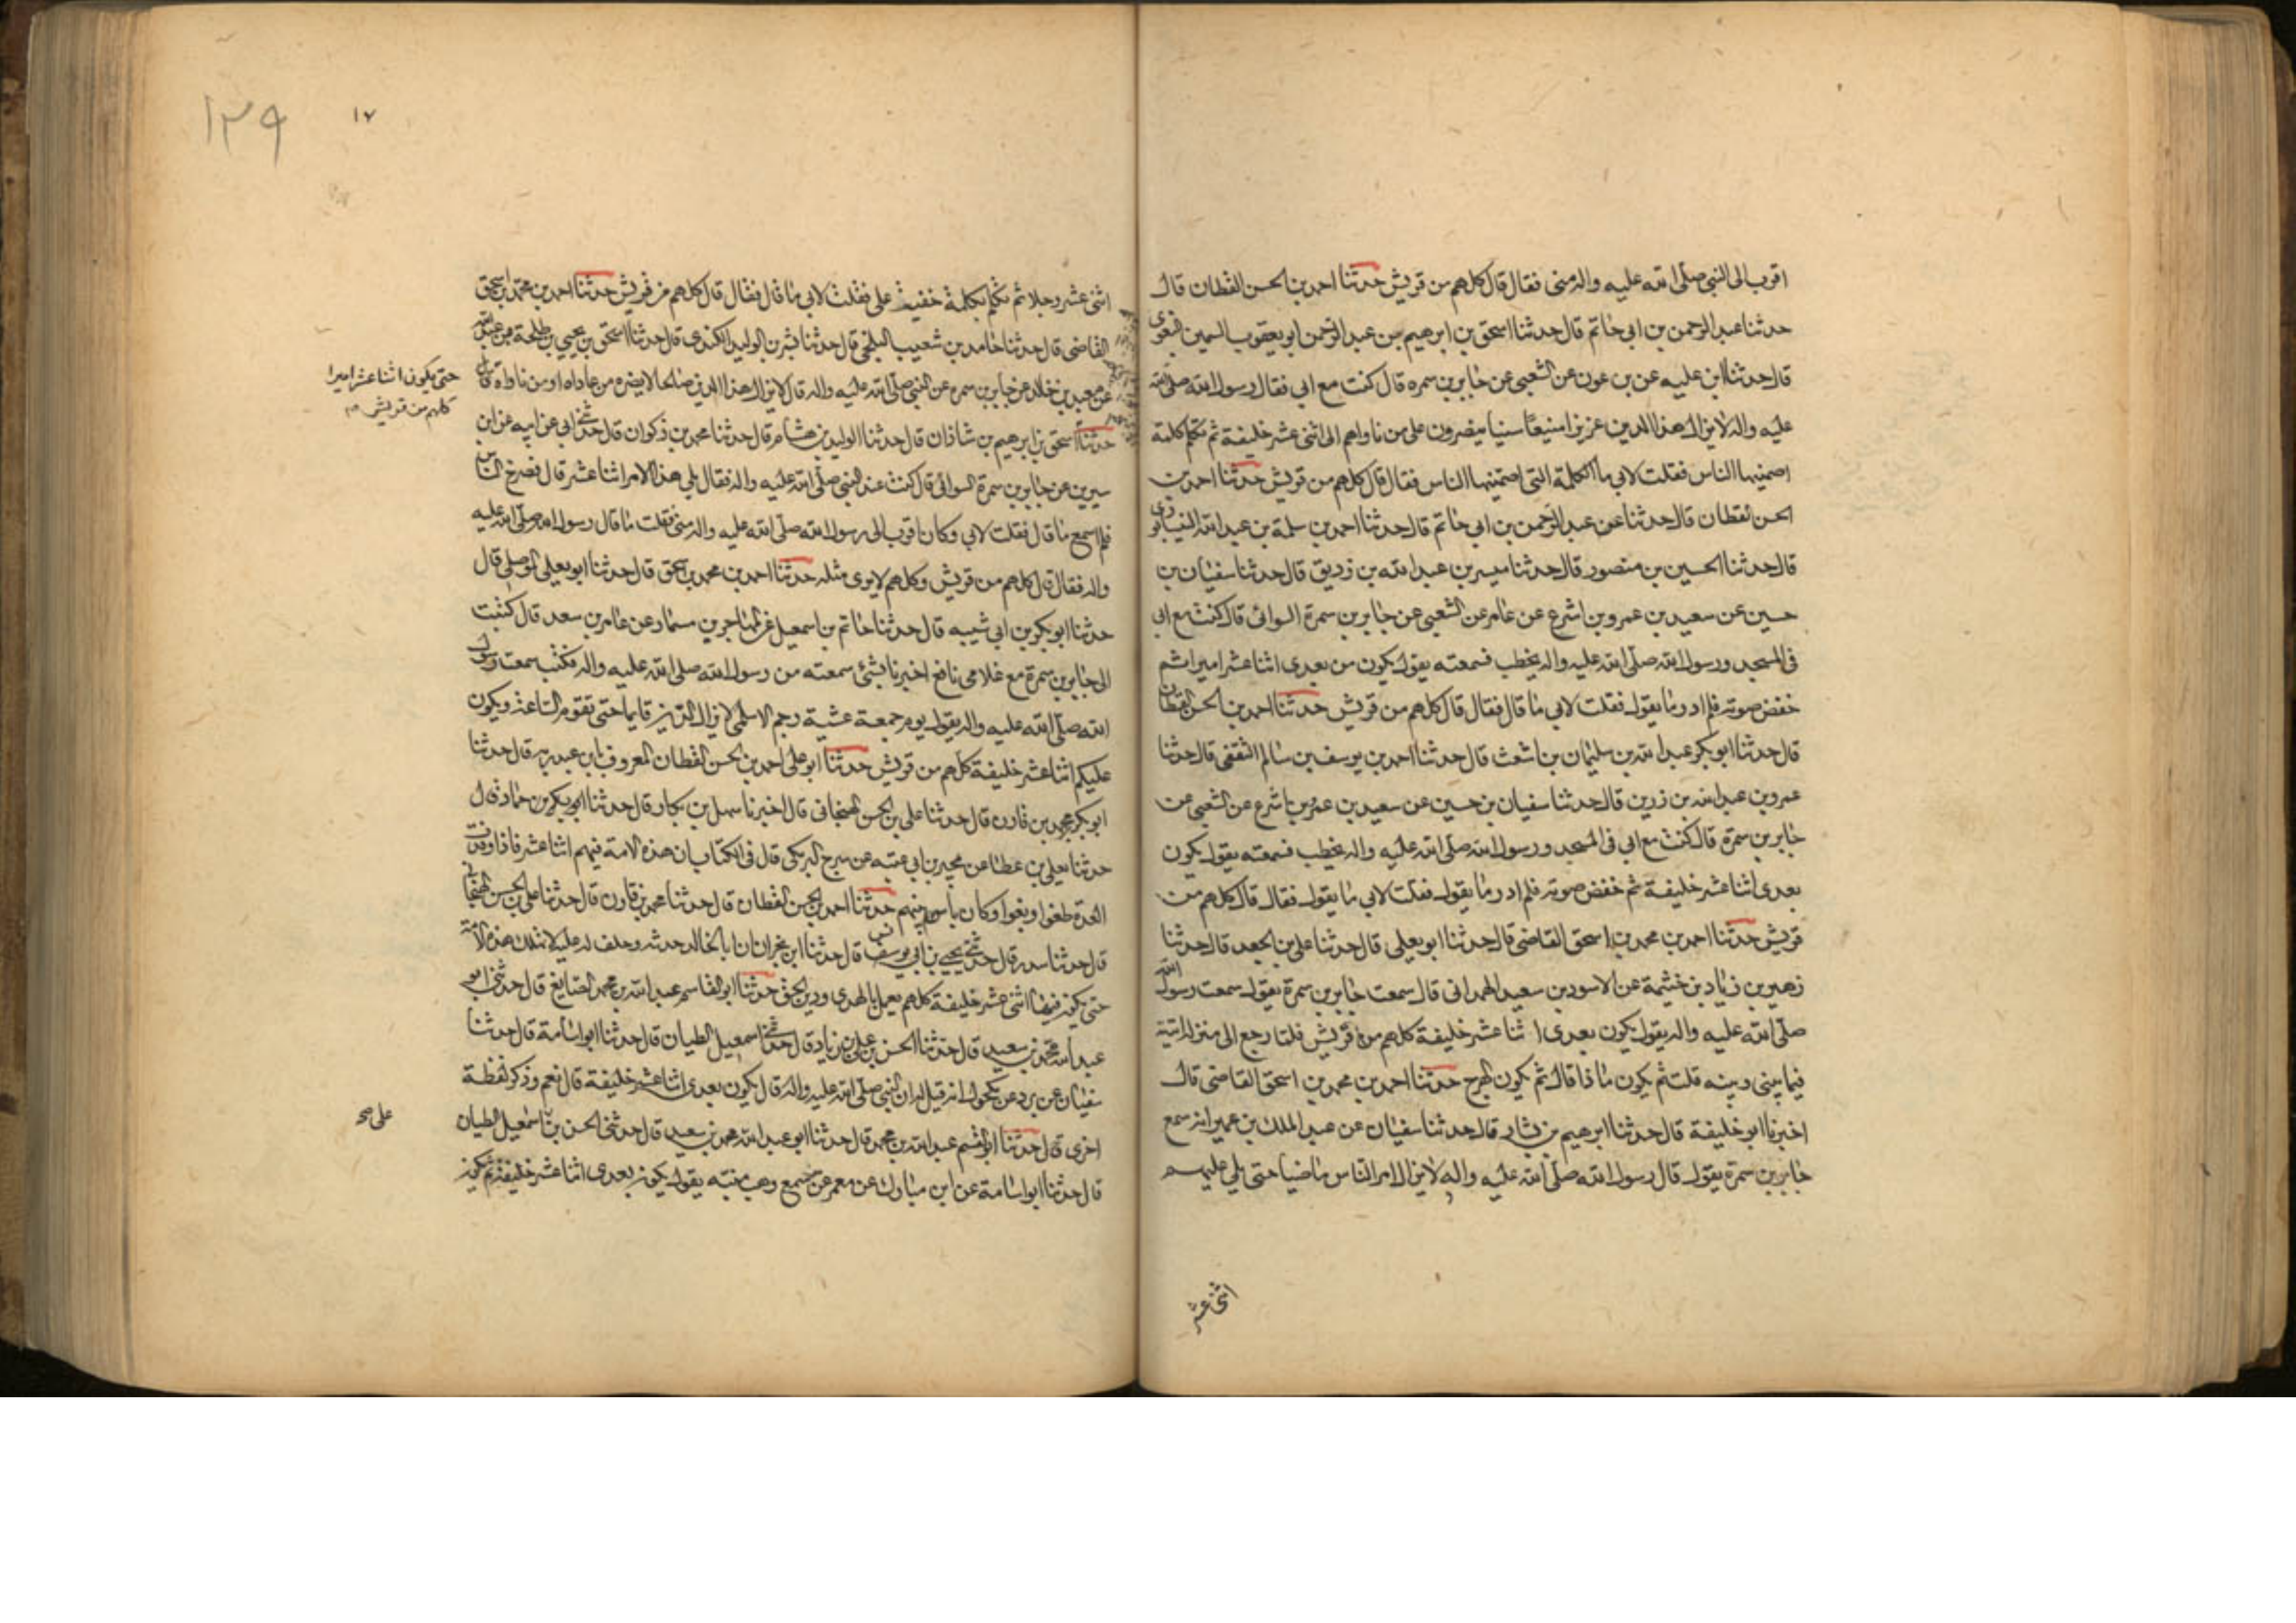 اقرب الى النبي صلى الله عليه واله مني فقال قال كلهم من قريش حدثنا احمد بن الحسن القطان قال
حدثنا عبد الرحمن بن ابي حاتم قال حدثنا اسحق بن ابرهيم بن عبد الرحمن ابو يعقوب السمين البغوي
قال حدثنا ابن عليه عن بن عون عن الشعبي عن جابر بن سمره قال كنت مع ابي فقال رسول الله صلى الله
عليه واله لا يزال هذا الدين عزيزا منيعا سنيا ينصرون على من ناواهم الى اثنى عشر خليفة ثم تكلم كلمة
اصمنيها الناس فقلت لابي ما الكلمة التي اصمتنيها الناس فقال قال كلهم من قريش حدثنا احمد بن
الحسن القطان قال حدثنا عن عبد الرحمن بن ابي حاتم قال حدثنا احمد بن سلمة بن عبد الله النيسابوري
قال حدثنا الحسين بن منصور قال حدثنا ميسر بن عبد الله بن زريق قال حدثنا سفيان بن
حسين عن سعيد بن عمرو بن اشرع عن عامر عن الشعبي عن جابر بن سمرة السوائي قال كنت مع ابي
في المسجد ورسول الله صلى الله عليه واله يخطب فسمعته يقول يكون من بعدي اثنا عشر اميرا ثم
خفض صوته فلم ادر ما يقول فقلت لابي ما قال فقال قال كلهم من قريش حدثنا احمد بن الحسن القطان
قال حدثنا ابو بكر عبد الله بن سليمان بن اشعث قال حدثنا احمد بن يوسف بن سالم الثقفي قال حدثنا
عمرو بن عبد الله بن زرين قال حدثنا سفيان بن حسين عن سعيد بن عمرو بن اشرع عن الشعبي عن
جابر بن سمرة قال كنت مع ابي في المسجد ورسول الله صلى الله عليه واله يخطب فسمعته يقول يكون
بعدي اثنا عشر خليفة ثم خفض صوته فلم ادر ما يقول فقلت لابي ما يقول فقال قال كلهم من
قريش حدثنا احمد بن محمد بن اسحق القاضي قال حدثنا ابو يعلى قال حدثنا علي بن الجعد قال حدثنا
زهير بن زياد بن خثيمة عن الاسود بن سعيد الهمداني قال سمعت جابر بن سمرة يقول سمعت رسول الله
صلى الله عليه واله يقول يكون بعدي اثنا عشر خليفة كلهم من قريش فلما رجع الى منزله اتيته
فيما بيني وبينه قلت ثم يكون ماذا قال ثم يكون الهرج حدثنا احمد بن محمد بن اسحق القاضي قال
اخبرنا ابو خليفة قال حدثنا ابرهيم بن بشار قال حدثنا سفيان عن عبد الملك بن عمير انه سمع
جابر بن سمرة يقول قال رسول الله صلى الله عليه واله لا يزال امر الناس ماضيا حتى يلي عليهم
اثنى عشر
١٣٩
١٧
اثنى عشر رجلا ثم تكلم بكلمة خفيت علي فقلت لابي ما قال فقال قال كلهم من قريش حدثنا احمد بن محمد بن اسحق
القاضي قال حدثنا حامد بن شعيب البلخي قال حدثنا بشر بن الوليد الكندي قال حدثنا اسحق بن يحيى بن طلحة بن عبد الله
عن معبد بن خالد عن جابر بن سمره عن النبي صلى الله عليه واله قال لا يزال هذا الدين صالحا لا يضره من عاداه او من ناواه
حتى يكون اثنا عشر اميرا
كلهم من قريش
حدثنا اسحق بن ابرهيم بن شاذان قال حدثنا الوليد بن هشام قال حدثنا محمد بن ذكوان قال حدثني ابي عن ابيه عن ابن
سيرين عن جابر بن سمرة السوائي قال كنت عند النبي صلى الله عليه واله فقال يلي هذا الامر اثنا عشر قال فصرخ الناس
فلم اسمع ما قال فقلت لابي وكان اقرب الى رسول الله صلى الله عليه واله مني فقلت ما قال رسول الله صلى الله عليه
واله فقال قال كلهم من قريش وكلهم لا يرى مثله حدثنا احمد بن محمد بن اسحق قال حدثنا ابو يعلى الموصلي قال
حدثنا ابو بكر بن ابي شيبه قال حدثنا حاتم بن اسمعيل عن المهاجر بن مسمار عن عامر بن سعد قال كتبت
الى جابر بن سمرة مع غلامي نافع اخبرنا بشئ سمعته من رسول الله صلى الله عليه واله فكتب سمعت رسول
الله صلى الله عليه واله يقول يوم جمعة عشية رجم الاسلمي لا يزال الدين قايما حتى تقوم الساعة ويكون
عليكم اثنا عشر خليفة كلهم من قريش حدثنا ابو علي احمد بن الحسن القطان المعروف بابن عبد ربه قال حدثنا
ابو بكر محمد بن قارن قال حدثنا علي بن الحسن الهنجاني قال اخبرنا سهل بن بكار قال حدثنا ابو بكر بن حماد قال
حدثنا يعلى بن عطا عن محير بن ابي عتبه عن سرج البرمكي قال في الكتاب ان هذه الامة فيهم اثنا عشر فاذا وفت
العدة طغوا وبغوا وكان باسهم بينهم حدثنا احمد بن الحسن القطان قال حدثنا محمد بن قارن قال حدثنا علي بن الحسن الهنجاني
قال حدثنا سدير قال حدثني يحيى بن ابي يونس قال حدثنا ابن نجران ان ابا الخالد حدثه وحلف له عليه لا تهلك هذه الامة
حتى يكون فيها اثنى عشر خليفة كلهم يعمل بالهدى ودين الحق حدثنا ابو القاسم عبد الله بن محمد الصايغ قال حدثني ابو
عبد الله محمد بن سعيد قال حدثنا الحسن بن علي بن زياد قال حدثنا اسمعيل الطيان قال حدثنا ابو اسامة قال حدثنا
سفيان عن برد عن مكحول انه قيل له ان النبي صلى الله عليه واله قال يكون بعدي اثنا عشر خليفة قال نعم وذكر لفظة
اخرى قال حدثنا ابو القسم عبد الله بن محمد قال حدثنا ابو عبد الله محمد بن سعيد قال حدثني الحسن بن اسمعيل الطيان
علي صح
قال حدثنا ابو اسامة عن ابن مبارك عن معمر عمن سمع وهب بن منبه يقول يكون بعدي اثنا عشر خليفة ثم يكون